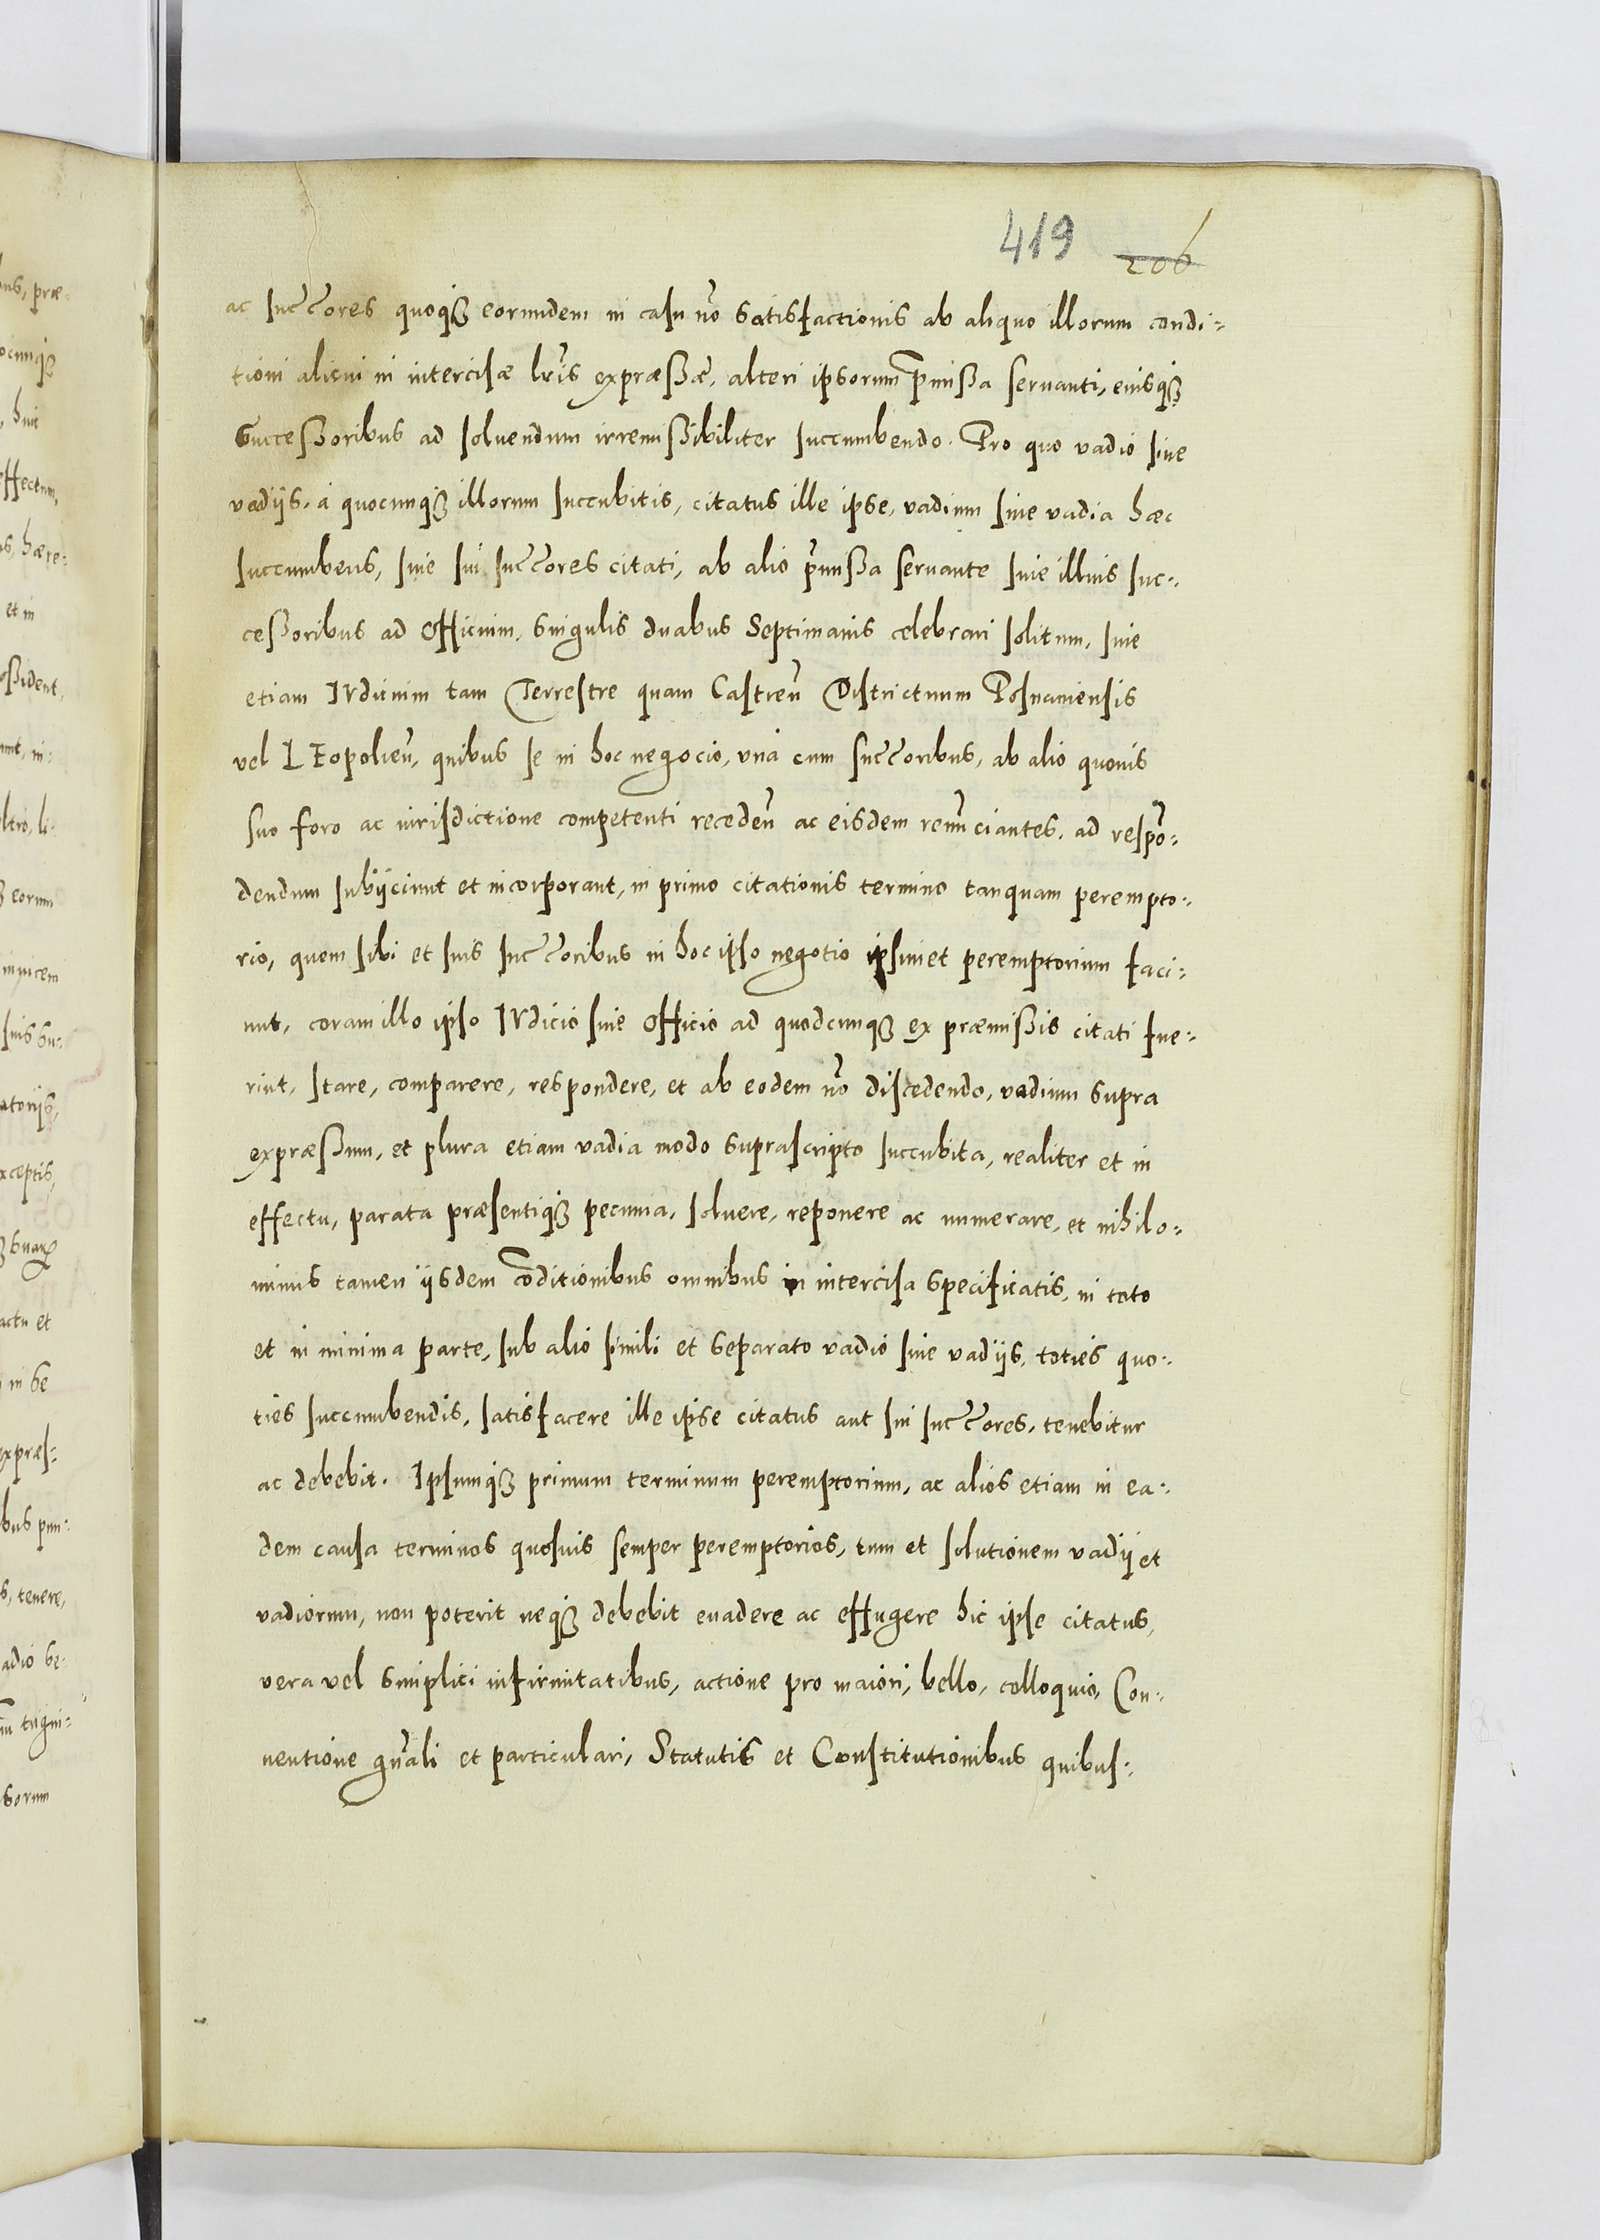 419 206
ac succores quoq3 eorundem in casu no satisfactionis ab aliquo illorum condi:
tioni alicui in intercisæ lris expræssæ, alteri ipsorum pmissa seruanti, eiusq3
Successoribus ad soluendum irremissibiliter succumbendo. Pro quo vadio siue
vadijs, a quocunq3 illorum succubitis, citatus ille ipse, vadium siue vadia hæc
succumbens, siue sui succores citati, ab alio pmissa seruante siue illius suc:
cessoribus ad Officium, singulis duabus Septimanis celebrari solitum, siue
etiam Iudicium tam Terrestre quam Castren Districtuum Posnaniensis
vel Leopolien, quibus se in hoc negocio, vna cum succoribus, ab alio quouis
suo foro ac iurisdictione competenti receden ac eisdem renunciantes, ad respo:
dendum subijciunt et incorporant, in primo citationis termino tanquam perempto:
rio, quem sibi et suis succoribus in hoc ipso negotio ipsimet peremptorium faci:
unt, coram illo ipso Iudicio siue Officio ad quodcunq3 ex præmissis citati fue:
rint, stare, comparere, respondere, et ab eodem no discedendo, vadium supra
expræssum, et plura etiam vadia modo suprascripto succubita, realiter et in
effectu, parata præsentiq3 pecunia, soluere, reponere ac numerare, et nihilo:
minus tamen ijsdem conditionibus omnibus in intercisa specificatis, in toto
et in minima parte, sub alio simili et separato vadio siue vadijs, toties quo:
ties succumbendis, satisfacere ille ipse citatus aut sui succores, tenebitur
ac debebit. Ipsumq3 primum terminum peremptorium, ac alios etiam in ea:
dem causa terminos quosuis semper peremptorios, tum et solutionem vadij et
vadiorum, non poterit neq3 debebit euadere ac effugere hic ipse citatus,
vera vel simplici infirmitatibus, actione pro maiori, bello, colloquio, Con:
uentione gnali et particulari, Statutis et Constitutionibus quibus: